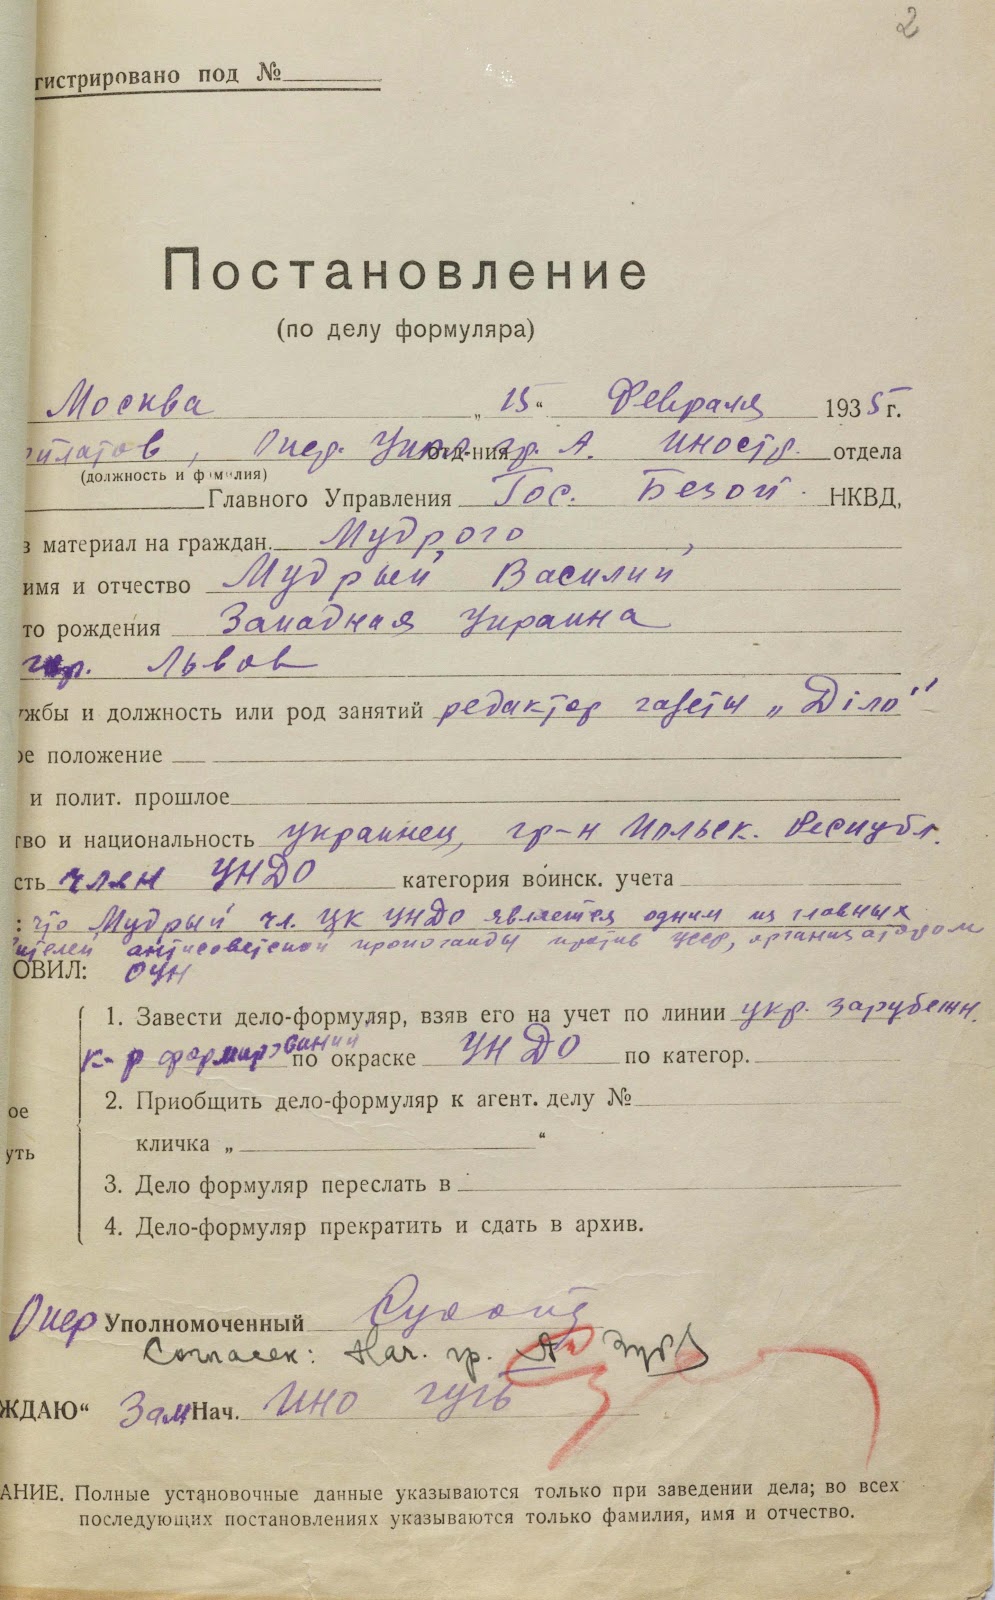 2
гистрировано под №
Постановление
(по делу формуляра)
Москва „15“ Февраля 1935 г.
Опер. отд-ния гр. А. Иностр. отдела
(должность и фамилия)
Главного Управления Гос. Безоп. НКВД,
в материал на граждан. Мудрого,
имя и отчество Мудрый Василий
то рождения Западная Украина
гор. Львов
жбы и должность или род занятий редактор газеты „Діло“
ое положение
и полит. прошлое
тво и национальность украинец, гр-н Польск. Республ.
сть член УНДО категория воинск. учета
: что Мудрый чл. ЦК УНДО является одним из главных
ителей антисоветской пропоганды против УССР, организатором
ОВИЛ: ОУН
1. Завести дело-формуляр, взяв его на учет по линии укр. зарубежн.
к-р формирований по окраске УНДО по категор.
ое
2. Приобщить дело-формуляр к агент. делу №
уть
кличка „ “
3. Дело формуляр переслать в
4. Дело-формуляр прекратить и сдать в архив.
Опер Уполномоченный
Согласен: Нач. гр. А
ЖДАЮ“ Зам Нач. ИНО ГУГБ
АНИЕ. Полные установочные данные указываются только при заведении дела; во всех
последующих постановлениях указываются только фамилия, имя и отчество.